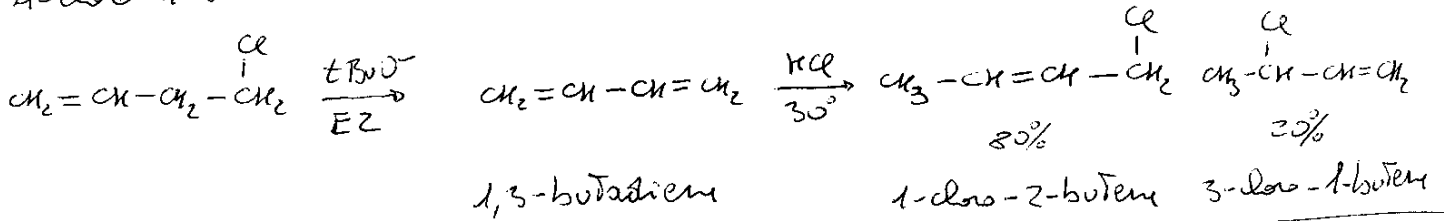 Cl Cl Cl
CH2=CH-CH2-CH2 tBuO- CH2=CH-CH=CH2 HCl CH3-CH=CH-CH2 CH3-CH-CH=CH2
E2 30°
80% 20%
1,3-butadiene 1-cloro-2-butene 3-cloro-1-butene